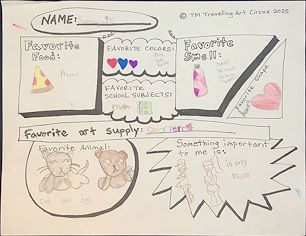 NAME:
© TM Traveling Art Circus 2025
Favorite
Food:
FAVORITE COLORS:
Favorite
Smell:
FAVORITE
SCHOOL SUBJECTS:
Favorite shape
Favorite art supply:
Favorite Animal:
Something important
to me is:
is my
mom
cat and